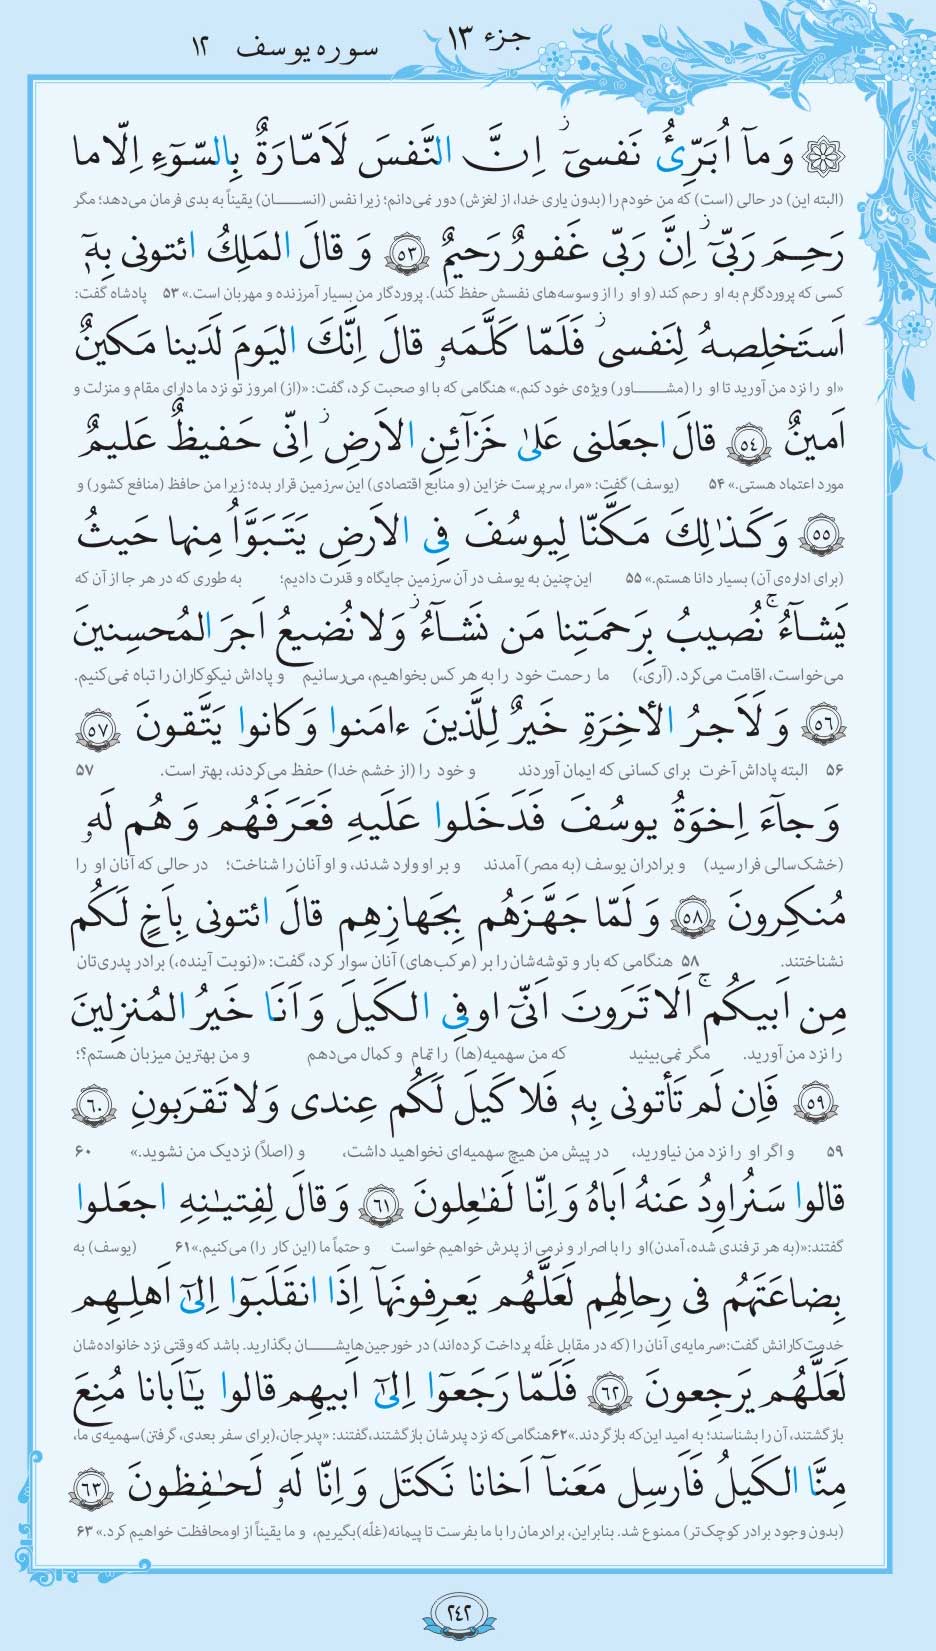 جزء ۱۳
سوره یوسف ۱۲
وَ مآ اُبَرِّئُ نَفسیٓ ۚ اِنَّ النَّفسَ لَاَمّارَةٌ بِالسّوٓءِ اِلّا ما
(البته این) در حالی (است) که من خودم را (بدون یاری خدا، از لغزش) دور نمی‌دانم؛ زیرا نفس (انسان) یقیناً به بدی فرمان می‌دهد؛ مگر
رَحِمَ رَبّیٓ ۚ اِنَّ رَبّی غَفورٌ رَحیمٌ ﴿۵۳﴾ وَ قالَ المَلِكُ ائتونی بِهٖٓ
کسی که پروردگارم به او رحم کند (و او را از وسوسه‌های نفسش حفظ کند). پروردگار من بسیار آمرزنده و مهربان است.» ۵۳ پادشاه گفت:
اَستَخلِصهُ لِنَفسی ۖ فَلَمّا كَلَّمَهٗ قالَ اِنَّكَ الیَومَ لَدَینا مَكینٌ
«او را نزد من آورید تا او را (مشاور) ویژه‌ی خود کنم.» هنگامی که با او صحبت کرد، گفت: «(از) امروز تو نزد ما دارای مقام و منزلت و
اَمینٌ ﴿۵۴﴾ قالَ اجعَلنی عَلیٰ خَزآئِنِ الاَرضِ ۖ اِنّی حَفیظٌ عَلیمٌ
مورد اعتماد هستی.» ۵۴ (یوسف) گفت: «مرا، سرپرست خزاین (و منابع اقتصادی) این سرزمین قرار بده؛ زیرا من حافظ (منافع کشور) و
﴿۵۵﴾ وَ كَذٰلِكَ مَكَّنّا لِیوسُفَ فِی الاَرضِ یَتَبَوَّاُ مِنها حَیثُ
(برای اداره‌ی آن) بسیار دانا هستم.» ۵۵ این‌چنین به یوسف در آن سرزمین جایگاه و قدرت دادیم؛ به طوری که در هر جا از آن که
یَشآءُ ۚ نُصیبُ بِرَحمَتِنا مَن نَشآءُ ۖ وَ لا نُضیعُ اَجرَ المُحسِنینَ
می‌خواست، اقامت می‌کرد. (آری،) ما رحمت خود را به هر کس بخواهیم، می‌رسانیم و پاداش نیکوکاران را تباه نمی‌کنیم.
﴿۵۶﴾ وَ لَاَجرُ الأخِرَةِ خَیرٌ لِلَّذینَ ءامَنوا وَ كانوا یَتَّقونَ ﴿۵۷﴾
۵۶ البته پاداش آخرت برای کسانی که ایمان آوردند و خود را (از خشم خدا) حفظ می‌کردند، بهتر است. ۵۷
وَ جآءَ اِخوَةُ یوسُفَ فَدَخَلوا عَلَیهِ فَعَرَفَهُم وَ هُم لَهٗ
(خشک‌سالی فرارسید) و برادران یوسف (به مصر) آمدند و بر او وارد شدند، و او آنان را شناخت؛ در حالی که آنان او را
مُنكِرونَ ﴿۵۸﴾ وَ لَمّا جَهَّزَهُم بِجَهازِهِم قالَ ائتونی بِاَخٍ لَكُم
نشناختند. ۵۸ هنگامی که بار و توشه‌شان را بر (مرکب‌های) آنان سوار کرد، گفت: «(نوبت آینده،) برادر پدری‌تان
مِن اَبیكُم ۚ اَلا تَرَونَ اَنّیٓ اوفِی الكَیلَ وَ اَنَا خَیرُ المُنزِلینَ
را نزد من آورید. مگر نمی‌بینید که من سهمیه(ها) را تمام و کمال می‌دهم و من بهترین میزبان هستم؟؛
﴿۵۹﴾ فَاِن لَم تَأتونی بِهٖ فَلا كَیلَ لَكُم عِندی وَ لا تَقرَبونِ ﴿۶۰﴾
۵۹ و اگر او را نزد من نیاورید، در پیش من هیچ سهمیه‌ای نخواهید داشت، و (اصلاً) نزدیک من نشوید.» ۶۰
قالوا سَنُراوِدُ عَنهُ اَباهُ وَ اِنّا لَفٰعِلونَ ﴿۶۱﴾ وَ قالَ لِفِتیٰنِهِ اجعَلوا
گفتند:«(به هر ترفندی شده، آمدن)او را با اصرار و نرمی از پدرش خواهیم خواست و حتماً ما (این کار را) می‌کنیم.»۶۱ (یوسف) به
بِضاعَتَهُم فی رِحالِهِم لَعَلَّهُم یَعرِفونَهآ اِذَا انقَلَبوٓا اِلیٰٓ اَهلِهِم
خدمت‌کارانش گفت:«سرمایه‌ی آنان را (که در مقابل غلّه پرداخت کرده‌اند) در خورجین‌هایشان بگذارید. باشد که وقتی نزد خانواده‌شان
لَعَلَّهُم یَرجِعونَ ﴿۶۲﴾ فَلَمّا رَجَعوٓا اِلیٰٓ اَبیهِم قالوا یٰٓاَبانا مُنِعَ
بازگشتند، آن را بشناسند؛ به امید این‌که بازگردند.»۶۲هنگامی‌که نزد پدرشان بازگشتند،گفتند: «پدرجان،(برای سفر بعدی، گرفتن)سهمیه‌ی ما،
مِنَّا الكَیلُ فَاَرسِل مَعَنآ اَخانا نَكتَل وَ اِنّا لَهٗ لَحٰفِظونَ ﴿۶۳﴾
(بدون وجود برادر کوچک‌تر) ممنوع شد. بنابراین، برادرمان را با ما بفرست تا پیمانه(غلّه)بگیریم، و ما یقیناً از اومحافظت خواهیم کرد.» ۶۳
۲۴۲